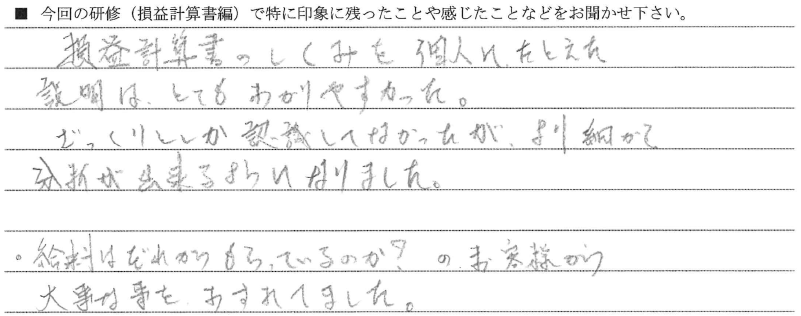 ■ 今回の研修（損益計算書編）で特に印象に残ったことや感じたことなどをお聞かせ下さい。
損益計算書のしくみを個人に、たとえた
説明は、とてもわかりやすかった。
ざっくりとしか認識してなかったが、より細かく
分析が出来るようになりました。
。給料はだれからもらっているのか？の、お客様から
大事な事を、わすれてました。